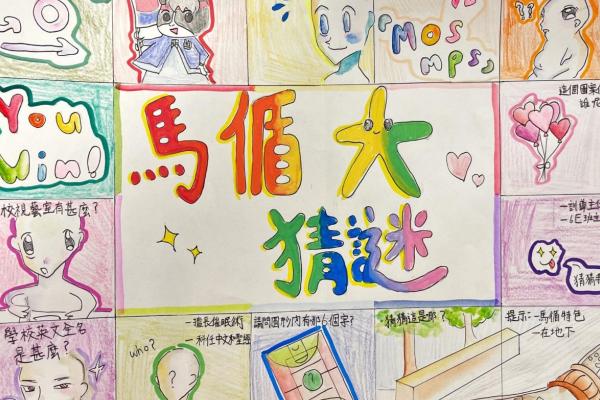 "MOS
mps"
??
You
Win!
馬循大
猜謎
這個圖案
誰
校視藝室有甚麼?
學校英文全名
是甚麼?
who?
一擅長催眠術
一科任中文和聖經
?
請問圖形內有那6個字?
猜猜這是那?
提示:一馬循特色
一在地下
一訓導主任
一6E班主
猜猜我